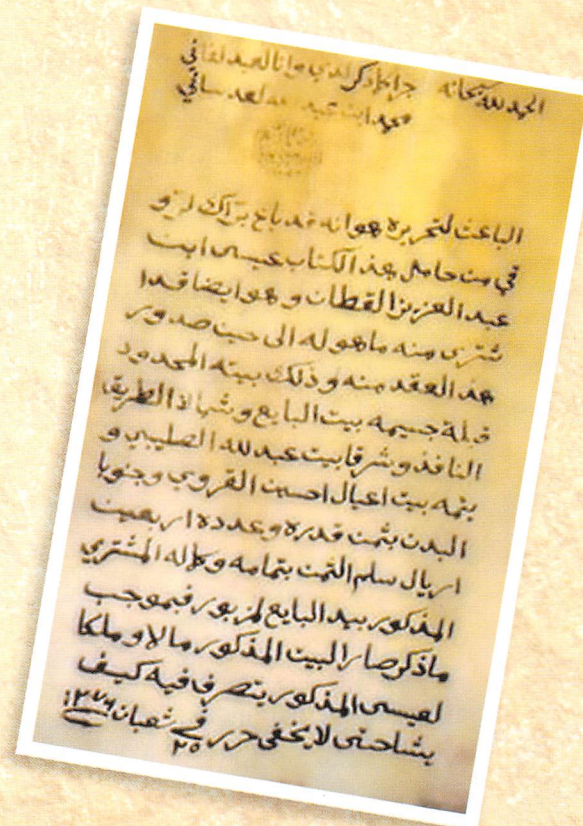 الحمد لله سبحانه جرا ماذكر لدي وانا العبد الفاني
محمد ابن عبد الله العدساني
الباعث لتحريره هوانه قد باع براك لزو
في من حامل هذ الكتاب عيسى ابن
عبد العزيز القطان وهو ايضا قد ا
شترى منه ماهو له الى حين صدور
هذ العقد منه وذلك بيته المحدود
قبلة جسيمه بيت البايع وشمالا الطريق
النافذ وشرقا بيت عبد لله الصليبي و
بتمه بيت اعيال احسين القروي وجنوبا
البدن بثمن قدره وعدده اربعين
اريال سلم الثمن بتمامه وكماله المشتري
المذكور بيد البايع لمزبور فبموجب
ماذكر صار البيت المذكور مالا وملكا
لعيسى المذكور يتصرف فيه كيف
يشا حتى لا يخفى حرر في ٢٥ شعبان ١٢٧٦